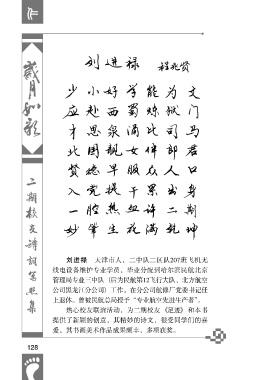 作
歲月如歌
二期校友诗词写照集
刘进禄 程兆贤
少小好学能为文
应赴西蜀炼狱门
才思泉涌比司马
北国靓女伴郎君
赞念早服众人口
入党提干累出身
一腔热血译二期
妙笔生花满乾坤
刘进禄 天津市人，二中队二区队207班飞机无
线电设备维护专业学员，毕业分配到哈尔滨民航北京
管理局专业三中队（后为民航第12飞行大队、北方航空
公司黑龙江分公司）工作，在分公司航修厂党委书记任
上退休。曾被民航总局授予“专业航空先进生产者”。
热心校友联谊活动，为二期校友《足迹》和本书
提供了新颖的创意，其精妙的诗文，很受同学们的喜
爱，其书画美术作品成果颇丰，多项获奖。
128